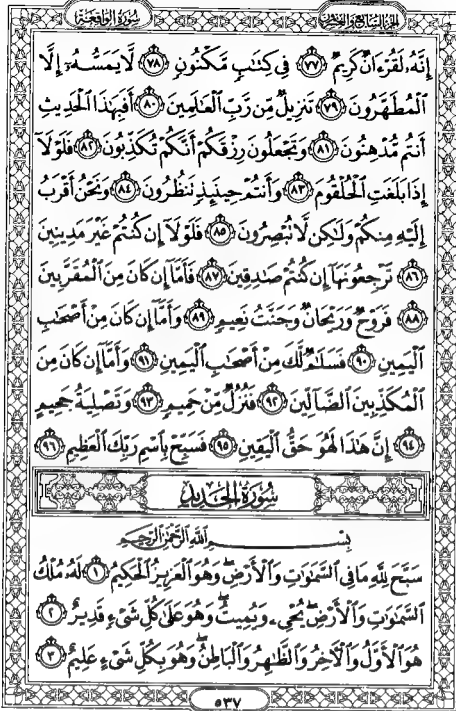 سورة الواقعة
الجزء السابع والعشرون
إِنَّهُۥ لَقُرْءَانٌ كَرِيمٌ ٧٧ فِى كِتَٰبٍ مَّكْنُونٍ ٧٨ لَّا يَمَسُّهُۥٓ إِلَّا
ٱلْمُطَهَّرُونَ ٧٩ تَنزِيلٌ مِّن رَّبِّ ٱلْعَٰلَمِينَ ٨٠ أَفَبِهَٰذَا ٱلْحَدِيثِ
أَنتُم مُّدْهِنُونَ ٨١ وَتَجْعَلُونَ رِزْقَكُمْ أَنَّكُمْ تُكَذِّبُونَ ٨٢ فَلَوْلَآ
إِذَا بَلَغَتِ ٱلْحُلْقُومَ ٨٣ وَأَنتُمْ حِينَئِذٍ تَنظُرُونَ ٨٤ وَنَحْنُ أَقْرَبُ
إِلَيْهِ مِنكُمْ وَلَٰكِن لَّا تُبْصِرُونَ ٨٥ فَلَوْلَآ إِن كُنتُمْ غَيْرَ مَدِينِينَ
٨٦ تَرْجِعُونَهَآ إِن كُنتُمْ صَٰدِقِينَ ٨٧ فَأَمَّآ إِن كَانَ مِنَ ٱلْمُقَرَّبِينَ
٨٨ فَرَوْحٌ وَرَيْحَانٌ وَجَنَّتُ نَعِيمٍ ٨٩ وَأَمَّآ إِن كَانَ مِنْ أَصْحَٰبِ
ٱلْيَمِينِ ٩٠ فَسَلَٰمٌ لَّكَ مِنْ أَصْحَٰبِ ٱلْيَمِينِ ٩١ وَأَمَّآ إِن كَانَ مِنَ
ٱلْمُكَذِّبِينَ ٱلضَّآلِّينَ ٩٢ فَنُزُلٌ مِّنْ حَمِيمٍ ٩٣ وَتَصْلِيَةُ جَحِيمٍ
٩٤ إِنَّ هَٰذَا لَهُوَ حَقُّ ٱلْيَقِينِ ٩٥ فَسَبِّحْ بِٱسْمِ رَبِّكَ ٱلْعَظِيمِ ٩٦
سورة الحديد
بِسْمِ ٱللَّهِ ٱلرَّحْمَٰنِ ٱلرَّحِيمِ
سَبَّحَ لِلَّهِ مَا فِى ٱلسَّمَٰوَٰتِ وَٱلْأَرْضِ ۖ وَهُوَ ٱلْعَزِيزُ ٱلْحَكِيمُ ١ لَهُۥ مُلْكُ
ٱلسَّمَٰوَٰتِ وَٱلْأَرْضِ ۖ يُحْىِۦ وَيُمِيتُ ۖ وَهُوَ عَلَىٰ كُلِّ شَىْءٍ قَدِيرٌ ٢
هُوَ ٱلْأَوَّلُ وَٱلْءَاخِرُ وَٱلظَّٰهِرُ وَٱلْبَاطِنُ ۖ وَهُوَ بِكُلِّ شَىْءٍ عَلِيمٌ ٣
٥٣٧